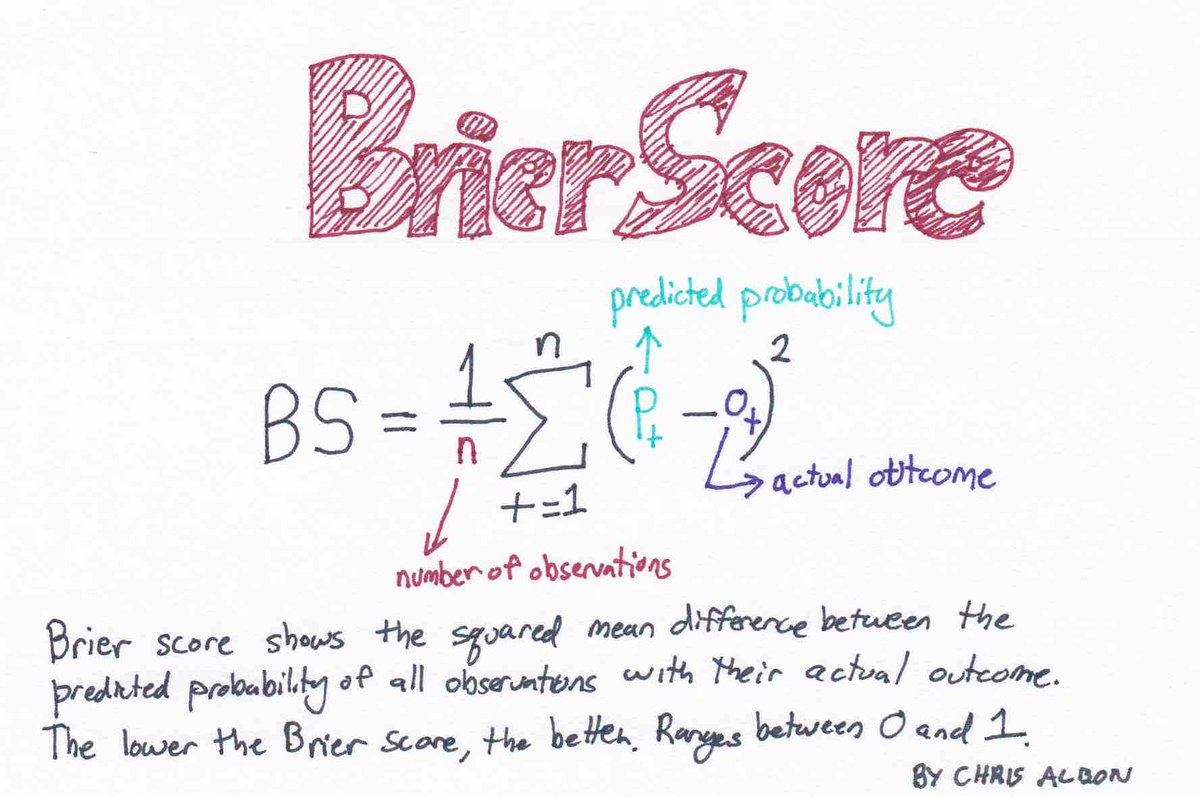 Brier Score
predicted probability
BS = 1/n n∑t=1 (Pt − Ot)²
actual outcome
number of observations
Brier score shows the squared mean difference between the
predicted probability of all observations with their actual outcome.
The lower the Brier Score, the better. Ranges between 0 and 1.
BY CHRIS ALBON